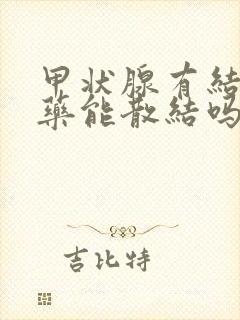 甲状腺有結
藥能散結吗
吉比特